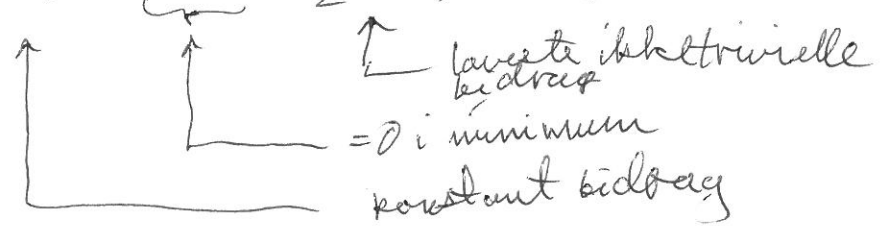 laveste ikketrivielle
bidrag
= 0 i minimum
konstant bidrag